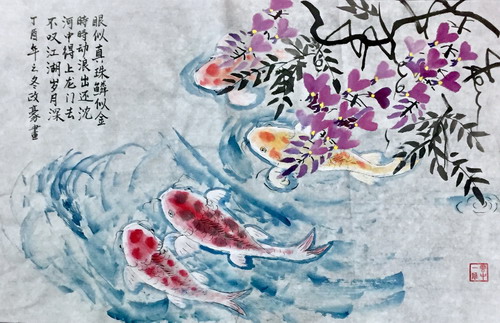 眼似真珠鳞似金
時時动浪出还沈
河中得上龙门去
不叹江湖岁月深
丁酉年之冬豪畫